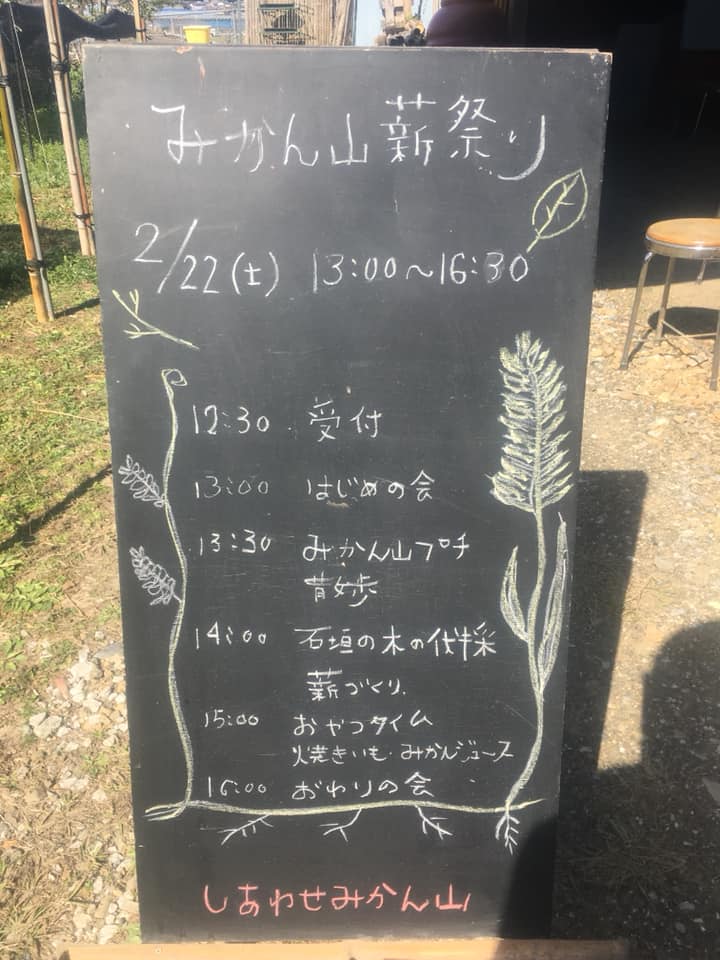 みかん山薪祭り
2/22(土) 13:00〜16:30
12:30 受付
13:00 はじめの会
13:30 みかん山プチ
散歩
14:00 石垣の木の伐採
薪づくり
15:00 おやつタイム
焼きいも・みかんジュース
16:00 おわりの会
しあわせみかん山